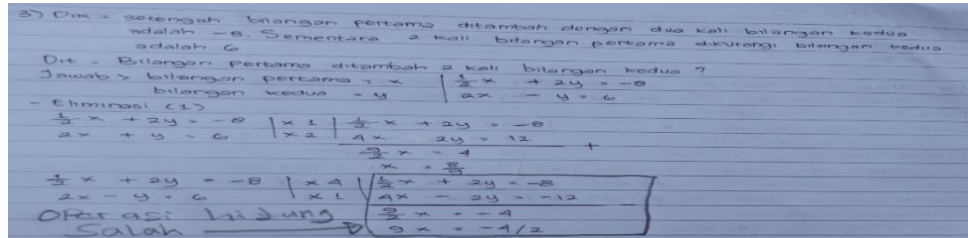 3) Dik = setengah bilangan pertama ditambah dengan dua kali bilangan kedua
adalah -8. Sementara 2 kali bilangan pertama dikurangi bilangan kedua
adalah 6
Dit = Bilangan pertama ditambah 2 kali bilangan kedua ?
Jawab > bilangan pertama = x | 1/2 x + 2y = -8
bilangan kedua = y | 2x - y = 6
- Eliminasi (1)
1/2 x + 2y = -8 | x 1 | 1/2 x + 2y = -8
2x + y = 6 | x 2 | 4x 2y = 12 +
9/2 x = 4
x = 8/9
1/2 x + 2y = -8 | x 4 | 1/2 x + 2y = -8
2x - y = 6 | x 1 | 4x - 2y = -12
Operasi hidung 9/2 x = -4
Salah → 9x = -4/2